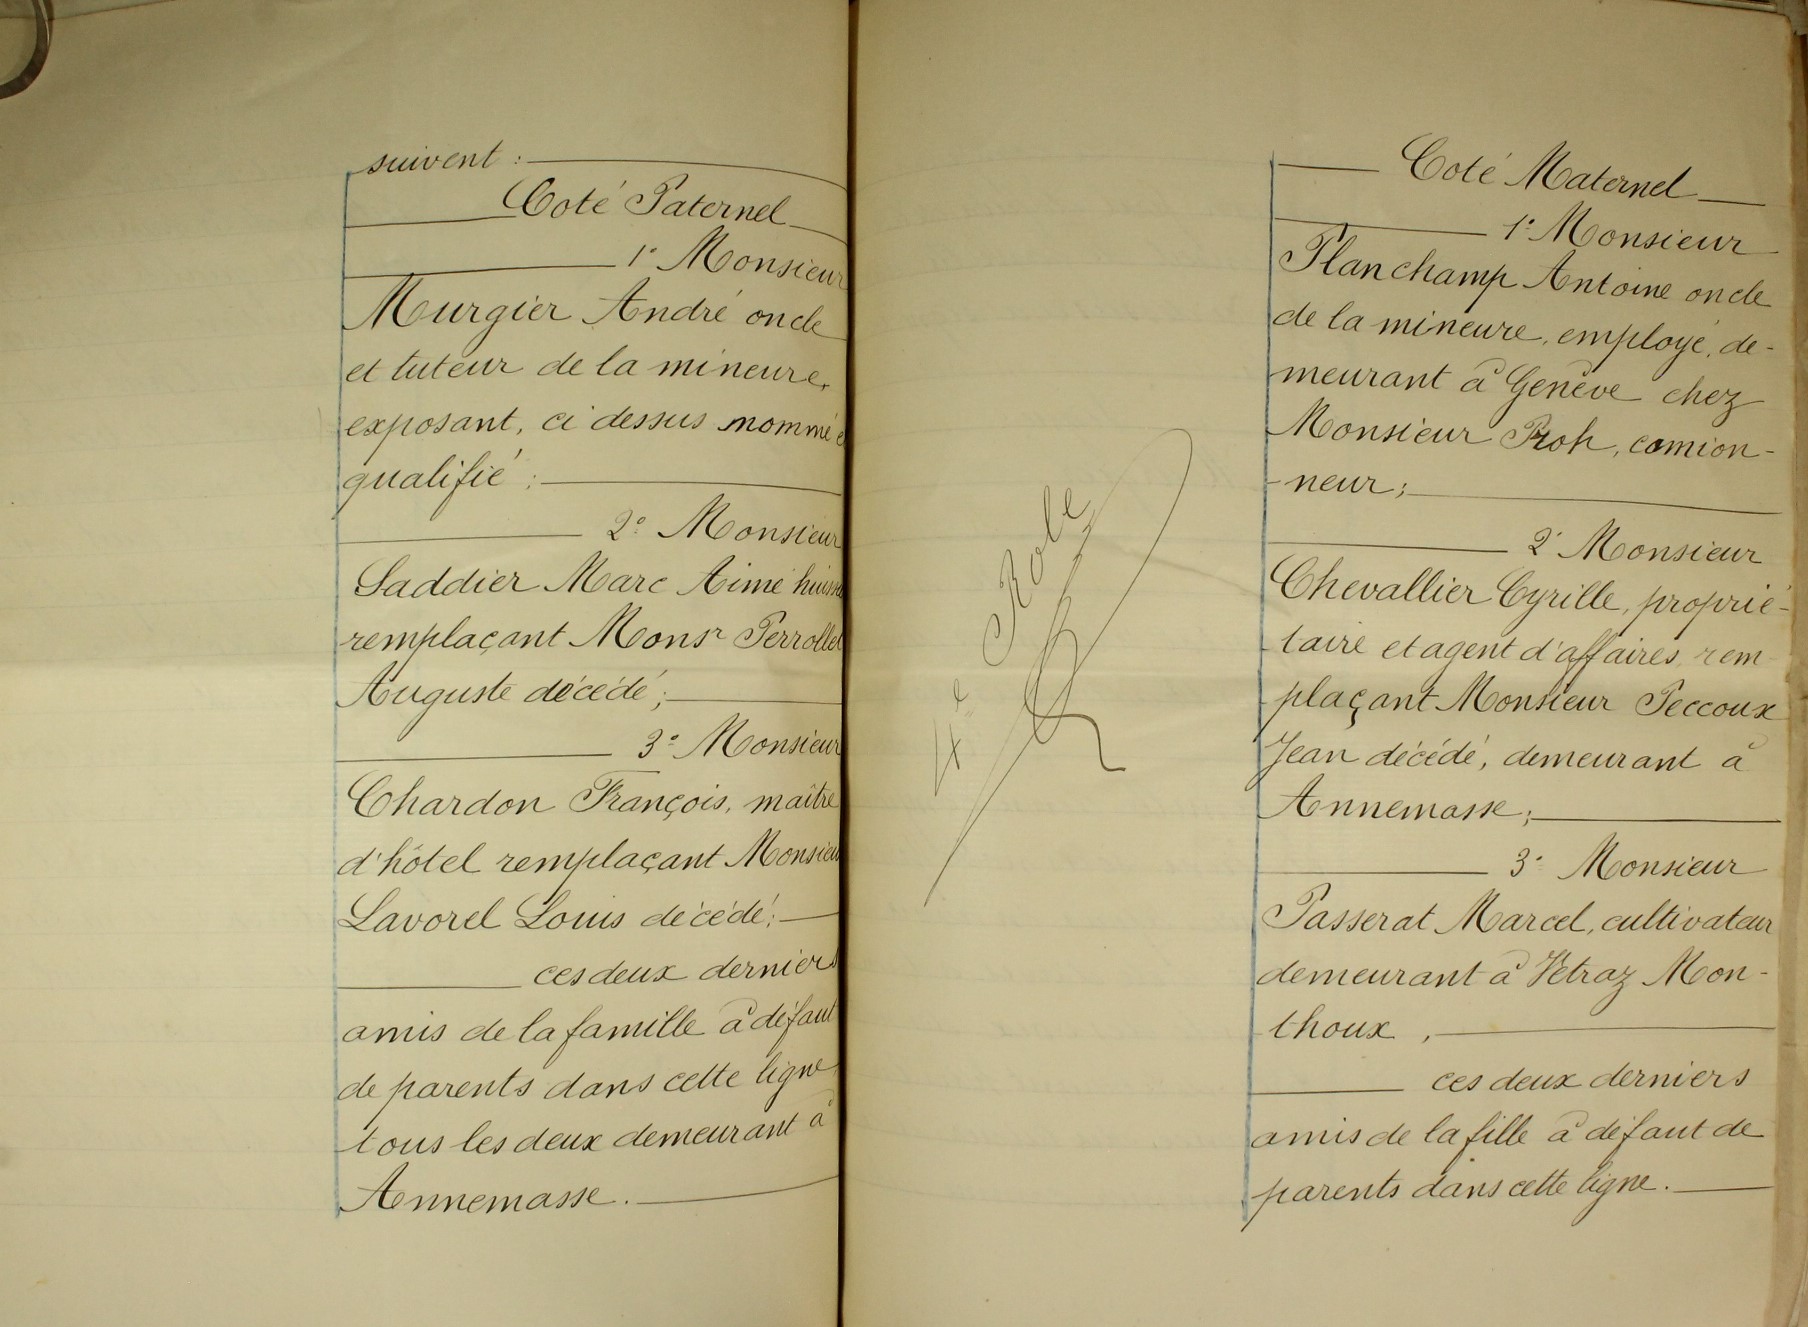 suivent :
Coté Paternel
1° Monsieur
Murgier André oncle
et tuteur de la mineure,
exposant, ci dessus nommé
qualifié :
2° Monsieur
Saddier Marc Aimé
remplaçant Monsr Perrollet
Auguste décédé ;
3° Monsieur
Chardon François, maître
d'hôtel remplaçant Monsieur
Lavorel Louis décédé ;
ces deux derniers
amis de la famille à défaut
de parents dans cette ligne
tous les deux demeurant à
Annemasse.
4e Role
Coté Maternel
1° Monsieur
Planchamp Antoine oncle
de la mineure, employé, de-
meurant à Genève chez
Monsieur, camion-
-neur ;
2° Monsieur
Chevallier Cyrille, proprié-
taire et agent d'affaires, rem-
plaçant Monsieur Peccoux
Jean décédé, demeurant à
Annemasse ;
3° Monsieur
Passerat Marcel, cultivateur
demeurant à Vétraz Mon-
thoux,
ces deux derniers
amis de la fille à défaut de
parents dans cette ligne.